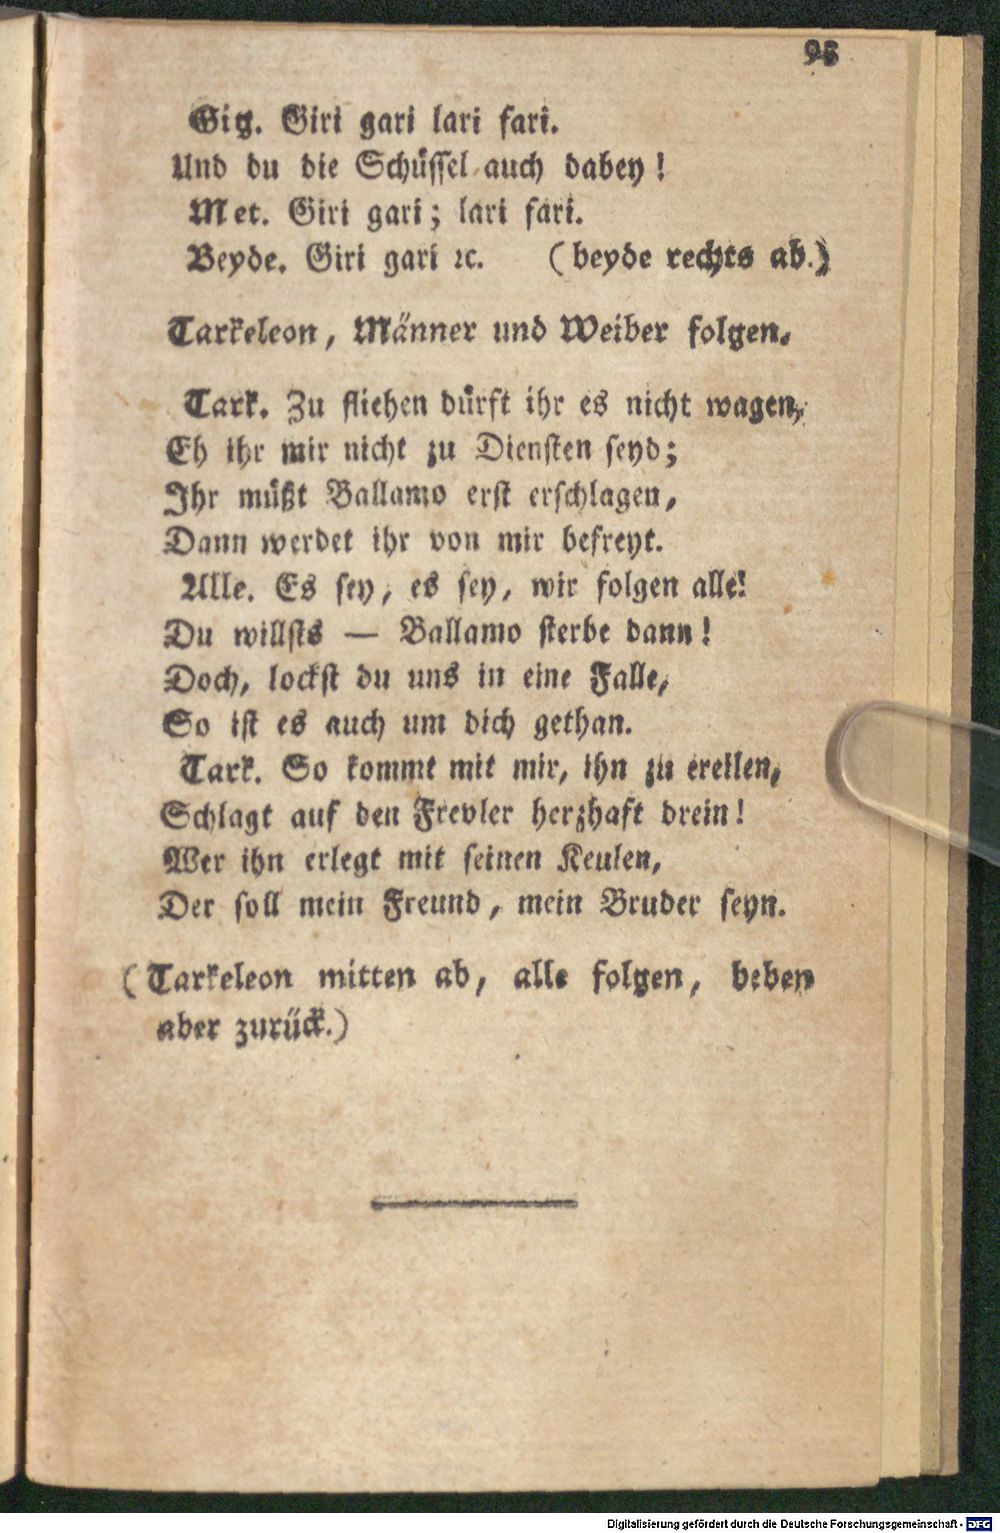 93
Gitz. Giri gari lari fari.
Und du die Schüssel auch dabey!
Met. Giri gari; lari fari.
Beyde. Giri gari ꝛc. (beyde rechts ab.)
Tarkeleon, Männer und Weiber folgen.
Tark. Zu fliehen dürft ihr es nicht wagen,
Eh ihr mir nicht zu Diensten seyd;
Ihr müßt Ballamo erst erschlagen,
Dann werdet ihr von mir befreyt.
Alle. Es sey, es sey, wir folgen alle!
Du willsts — Ballamo sterbe dann!
Doch, lockst du uns in eine Falle,
So ist es auch um dich gethan.
Tark. So kommt mit mir, ihn zu ereilen,
Schlagt auf den Frevler herzhaft drein!
Wer ihn erlegt mit seinen Keulen,
Der soll mein Freund, mein Bruder seyn.
(Tarkeleon mitten ab, alle folgen, beben
aber zurück.)
Digitalisierung gefördert durch die Deutsche Forschungsgemeinschaft - DFG